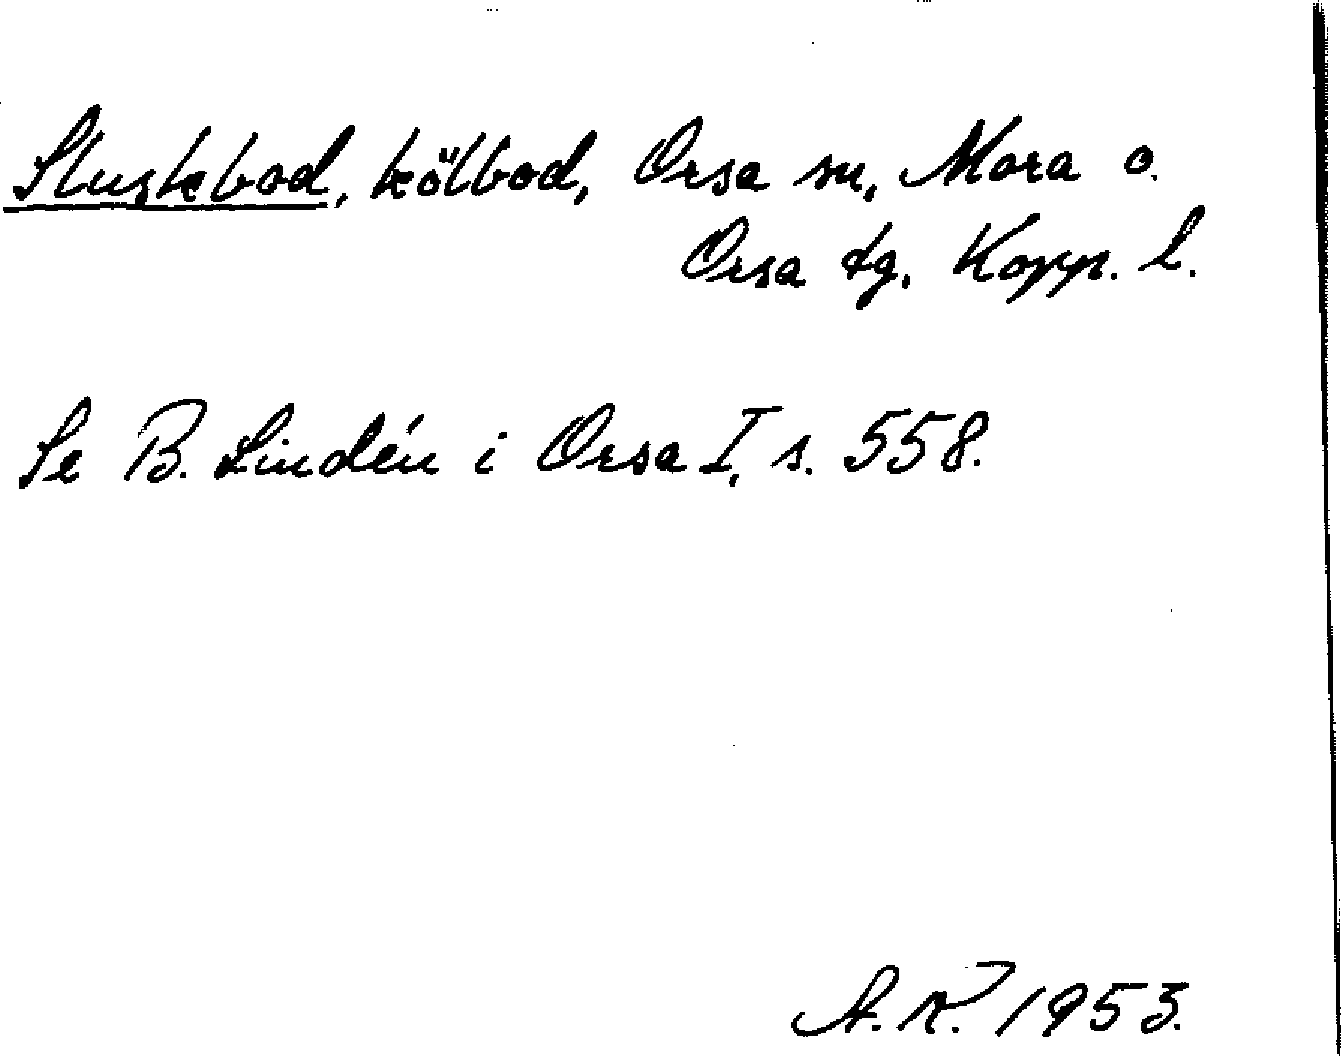 Sluskbod, kölbod, Orsa sn, Mora o.
Orsa tg, Kopp. l.
Se B. Lindén i Orsa I, s. 558.
A.R. 1953.